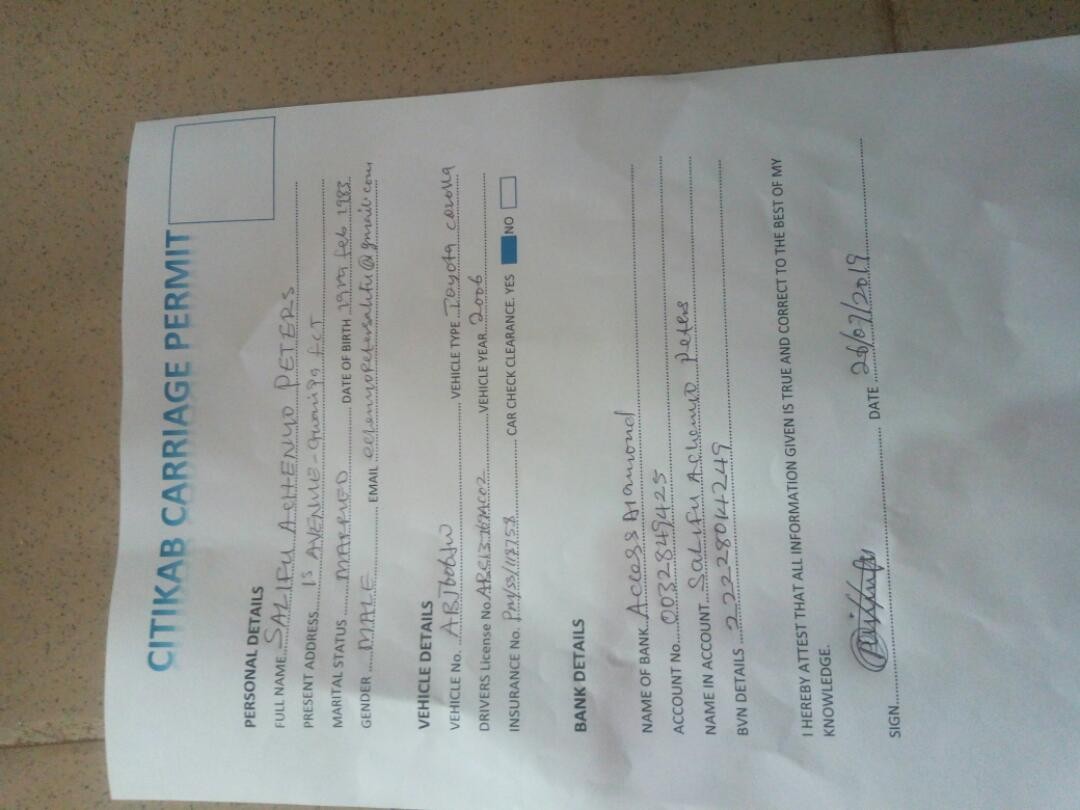 CITIKAB CARRIAGE PERMIT
PERSONAL DETAILS
FULL NAME. SALIFU ACHENYO PETERS
PRESENT ADDRESS. 1st AVENUE - Gwarinpa FCT
MARITAL STATUS MARRIED DATE OF BIRTH 19th Feb 1983
GENDER MALE EMAIL @gmail.com
VEHICLE DETAILS
VEHICLE No. VEHICLE TYPE Toyota corolla
DRIVERS License No. VEHICLE YEAR 2006
INSURANCE No. CAR CHECK CLEARANCE. YES NO
BANK DETAILS
NAME OF BANK Access Diamond
ACCOUNT No. 0032849425
NAME IN ACCOUNT. Salifu Achenyo Peters
BVN DETAILS 22228014249
I HEREBY ATTEST THAT ALL INFORMATION GIVEN IS TRUE AND CORRECT TO THE BEST OF MY
KNOWLEDGE.
SIGN DATE 26/07/2019